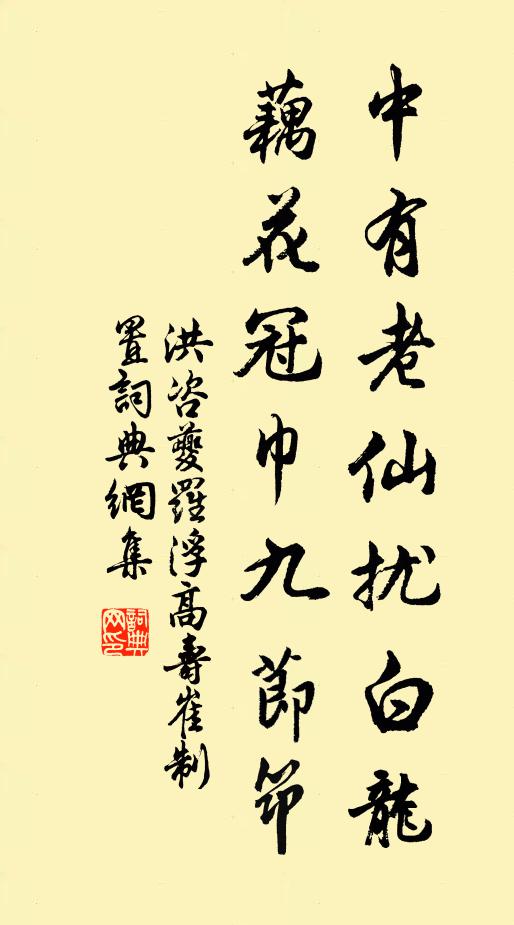 中有老仙扰白龍
藕花冠巾九節筇
洪咨夔羅浮高壽崔制
置詞典網集
詞典
网印